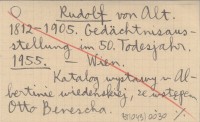 Rudolf von Alt.
1812-1905. Gedächtnisaus-
stellung im 50. Todesjahr.
1955. — Wien.
Katalog wystawy w Al-
bertinie wiedeńskiej, ze wstępem
Otto Benescha.